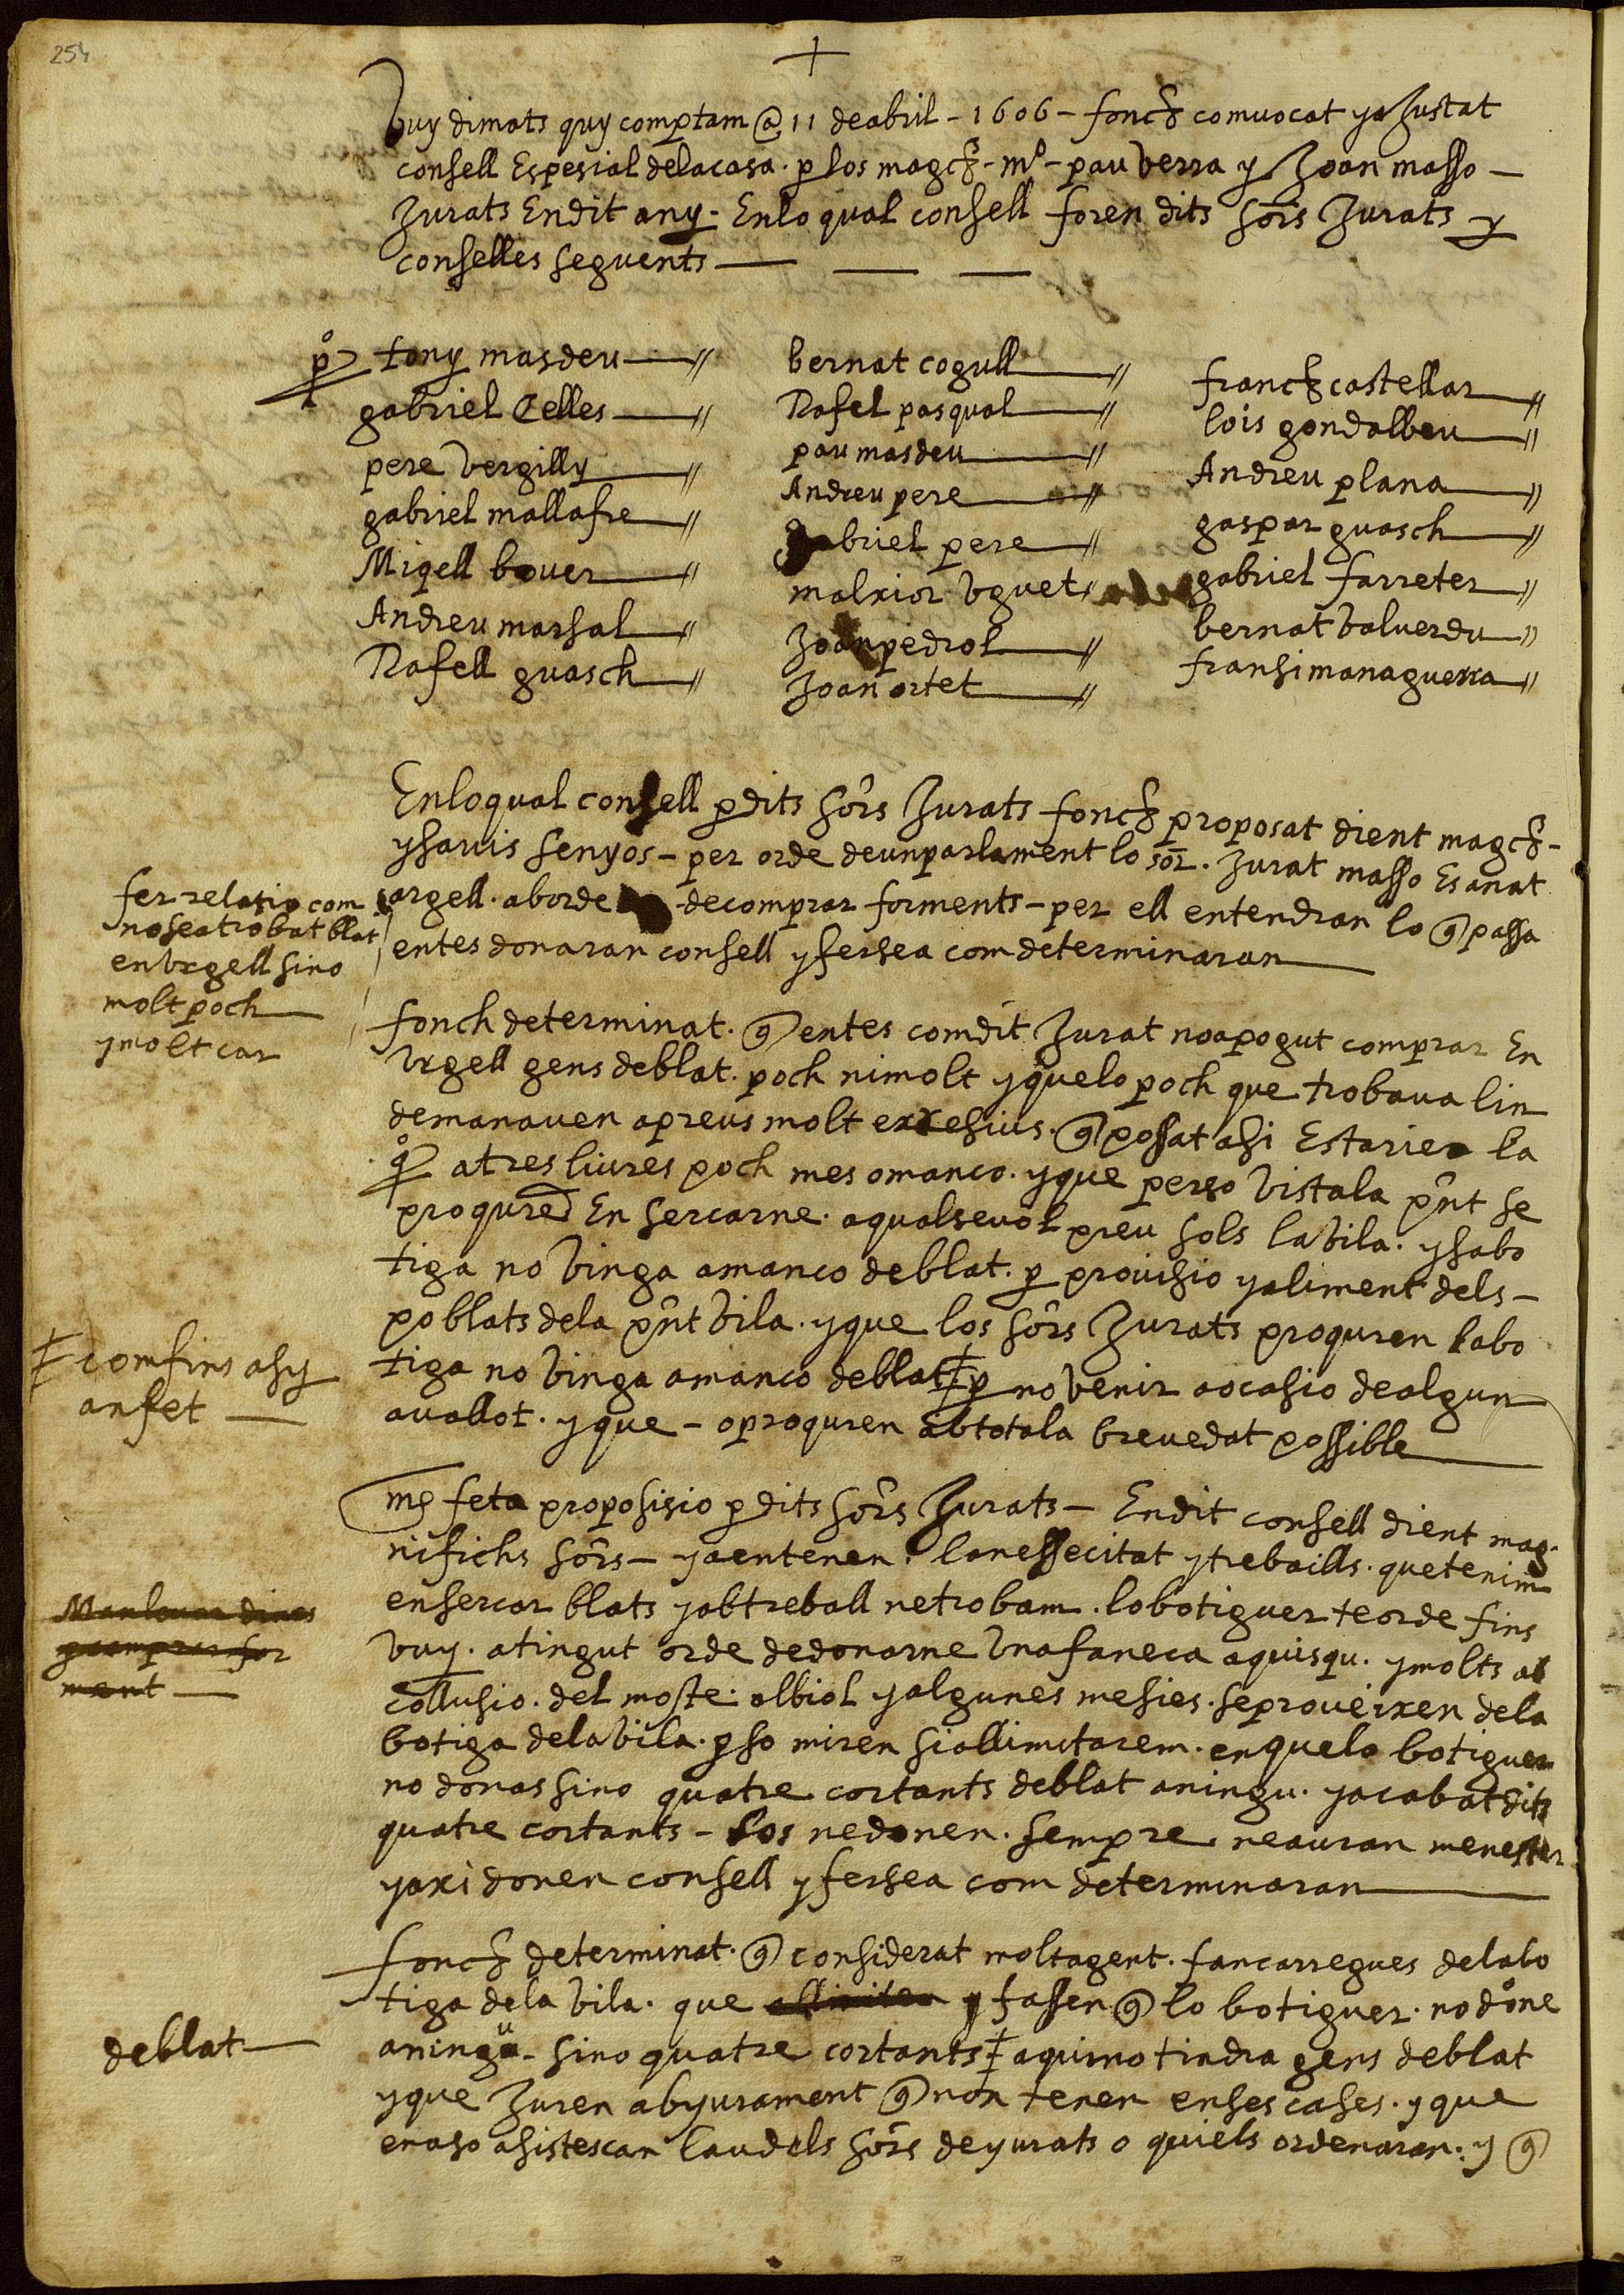 254
+
Vuy dimats quy comptam @ 11 de abril - 1606 - fonch comuocat y aJustat
consell Espesial dela casa. p los magchs - mº - pau Verra y Joan masso -
Jurats En dit any. En lo qual consell foren dits sors Jurats y
conselles seguents
pº tony masdeu
gabriel Celles
pere Vergilly
gabriel mallafre
Miqell bover
Andreu marsal
Rafell guasch
bernat cogull
Rafel pasqual
pau masdeu
Andreu pere
gabriel pere
malxior Vguet
Joan pedrol
Joan ortet
franch castellar
lois gondalbeu
Andreu plana
gaspar guasch
gabriel farreter
bernat Valuerdu
fransi managuerra
En lo qual consell p dits sors Jurats fonch proposat dient magchs -
y sauis senyos - per orde de un parlament lo sor. Jurat masso Es anat
a Vrgell. ab orde de comprar forments - per ell entendran lo q passa
entes donaran consell y fersea com determinaran
fer relatio com
no sea trobat blat
en Vrgell sino
molt poch
y molt car
fonch determinat. q entes com dit Jurat no a pogut comprar En
Vrgell gens de blat. poch ni molt y que lo poch que trobaua lin
demanauen a preus molt exxesius. q possat asi Estarie a la
qª a tres liures poch mes o manco. y que perço Vista la pnt se
proqure En sercarne. a qualseuol preu sols la Vila. y sa bo
tiga no Vinga a manco de blat. p prouisio y aliment dels -
poblats dela pnt Vila. y que los sors Jurats proquren la bo
tiga no Vinga a manco de blat ‡ p no venir a ocasio de algun
auallot. y que - o proquren ab tota la breuedat possible
‡ com fins asy
an fet
mes feta proposisio p dits sors Jurats - En dit consell dient mag.
nifichs sors - ya entenen. la nessecitat y trebaills. que tenim
en sercar blats y ab treball ne trobam. lo botiguer te orde fins
Vuy. a tingut orde de donarne Vna faneca a quisqu. y molts ab
collusio. del moste. albiol y algunes mesies. se proueixen dela
botiga dela Vila. pso miren si allimitarem. en que lo botiguer
no donas sino quatre cortants de blat a ningu. y acabat dits
quatre cortants - los ne donen. sempre. ne auran menester
y axi donen consell y fersea com determinaran
Manleuar dines
p comprar for
ment
fonch determinat. q considerat molta gent. fan carregues dela bo
tiga dela Vila. que allimiten y fassen q lo botiguer. no done
a ningu - sino quatre cortants ‡ a qui no tindra gens de blat
y que Juren ab yurament q non tenen en ses cases. y que
en aso asistescan laudels sors de yurats o qui els ordenaran. y q
de blat